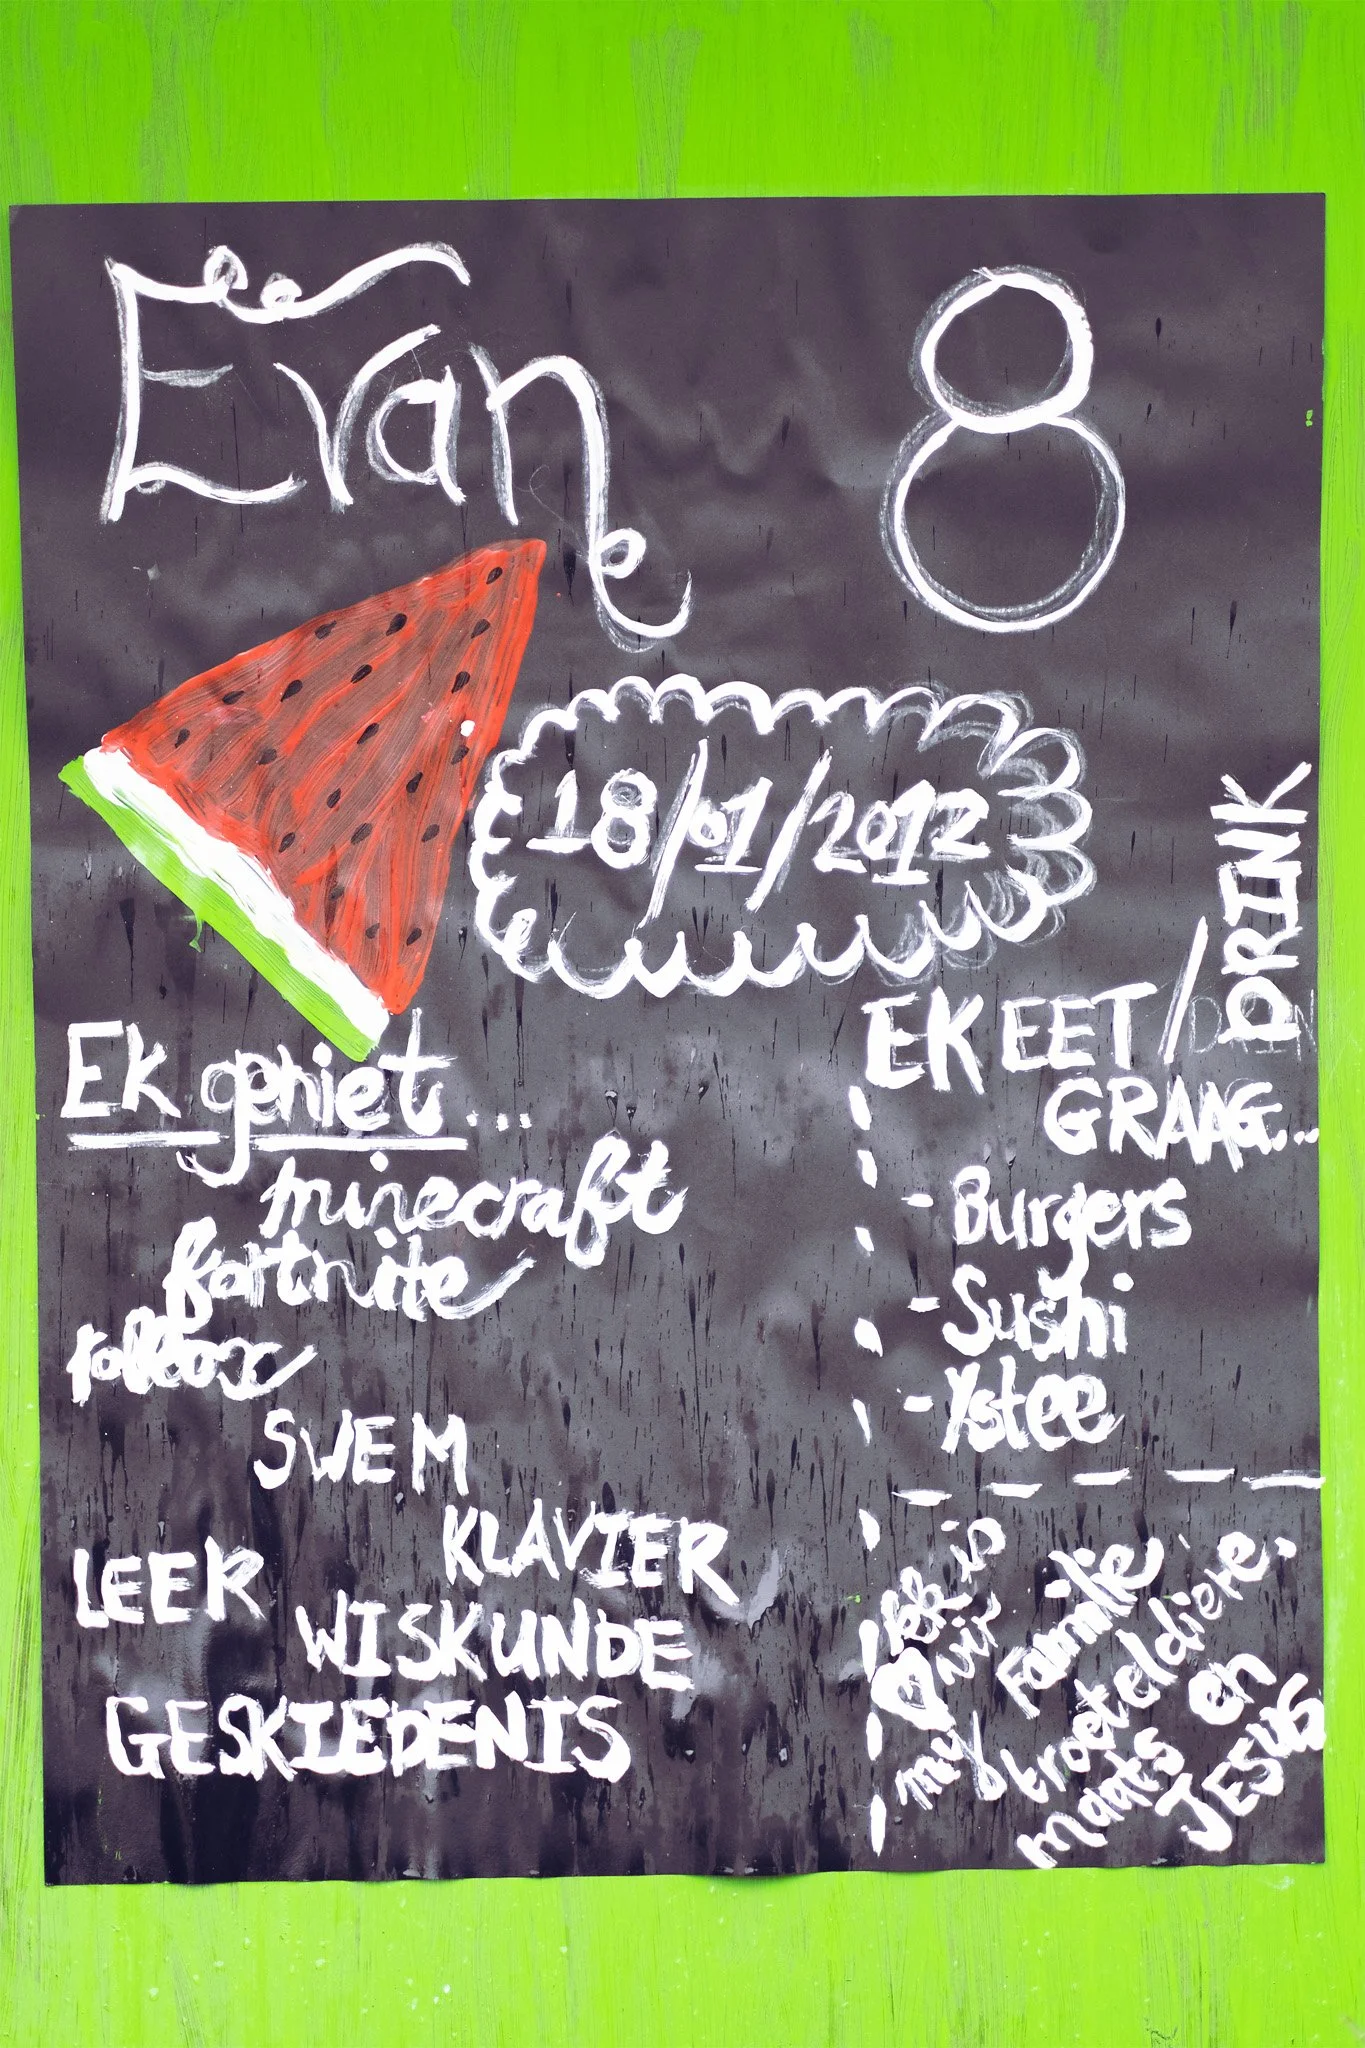 Evan
8
18/01/2012
EK geniet...
minecraft
fortnite
roblox
SWEM
KLAVIER
LEER
WISKUNDE
GESKIEDENIS
EK EET / DRINK
GRAAG...
- Burgers
- Sushi
- Ystee
lief vir
my Familie,
troeteldiere,
maats en
JESUS